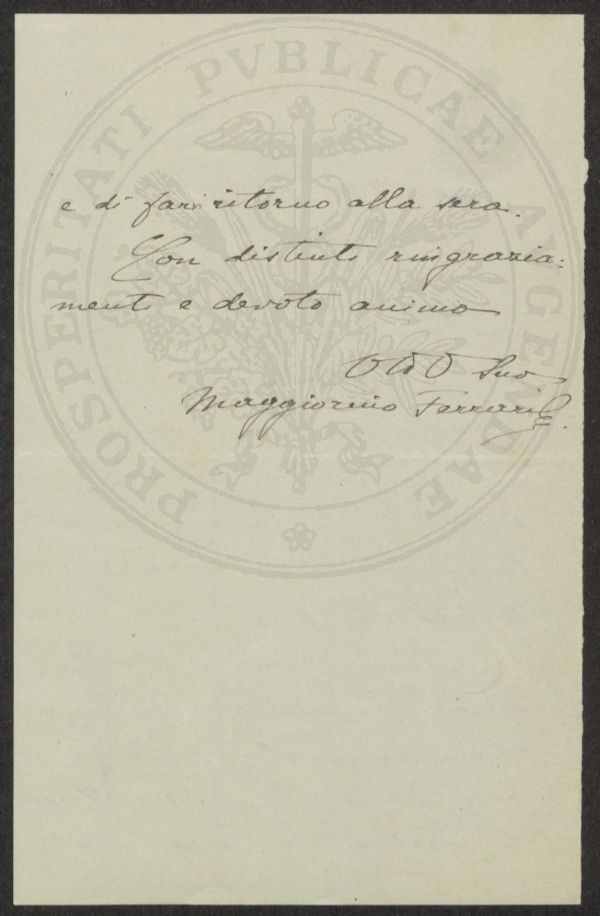 PROSPERITATI PVBLICAE AVGENDAE
e di farvi ritorno alla sera.
Con distinti ringrazia=
menti e devoto animo
Suo
Maggiorino Ferraris